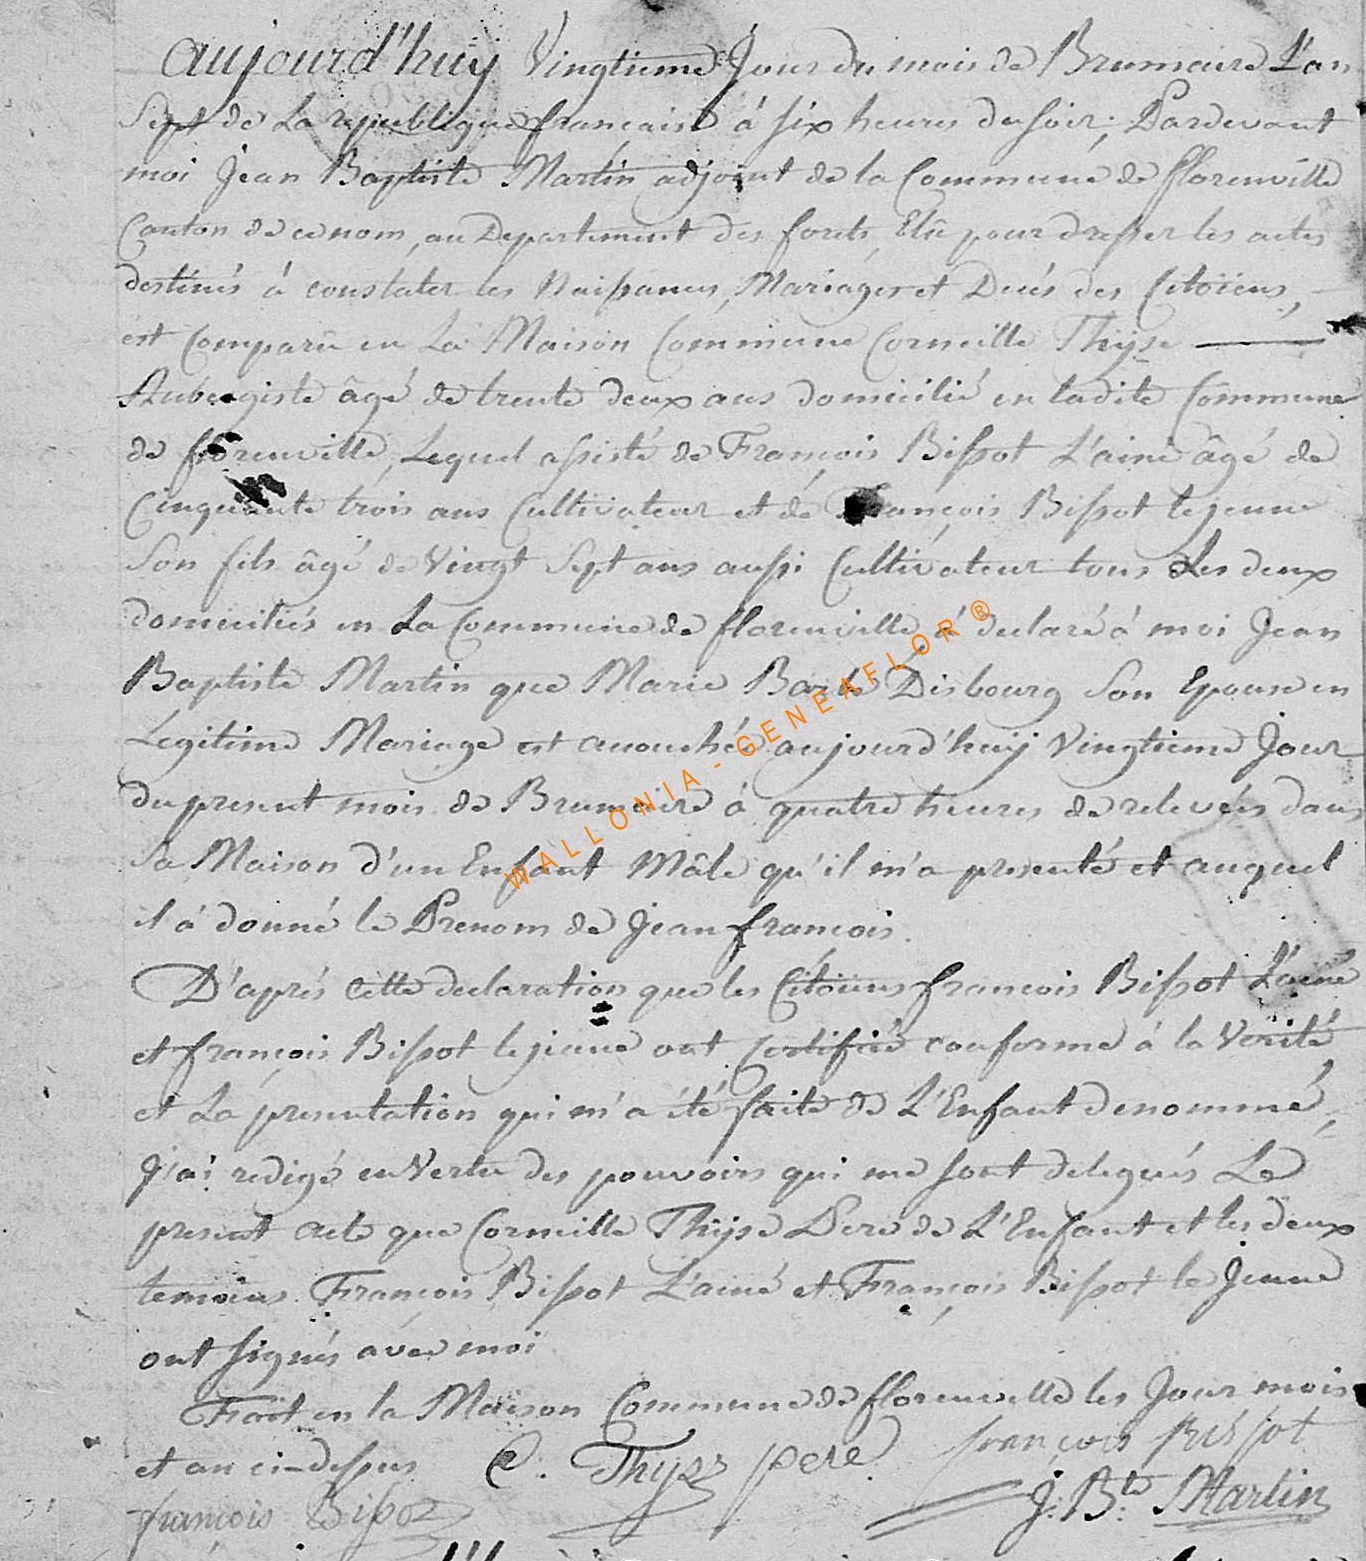 aujourd'huy Vingtieme Jour du mois de Brumaire L'an
Sept de La republique française à six heures du soir, Pardevant
moi Jean Baptiste Martin adjoint de la Commune de florenville
Canton de ce nom, au Departement des forets, Elû pour dresser les actes
destinés à constater les Naissances, Mariages et Decés des Citoiens,
est Comparû en La Maison Commune Corneille Thÿse
Aubergiste âgé de trente deux ans domicilié en ladite Commune
de florenville, Lequel assisté de François Bissot L'ainé âgé de
Cinquante trois ans Cultivateur et de François Bissot le jeune
Son fils âgé de Vingt Sept ans aussi Cultivateur tous Les deux
domiciliés en La Commune de florenville à declaré à moi Jean
Baptiste Martin que Marie Barbe Disbourg Son Epouse en
Legitime Mariage est acouchée aujourd'huij Vingtieme Jour
du present mois de Brumaire à quatre heures de relevées dans
Sa Maison d'un Enfant Mâle qu'il m'a presenté et auquel
il à donné le Prenom de Jean françois.
D'aprés cette declaration que les Citoiens françois Bissot L'ainé
et françois Bissot le jeune ont Certifiée conforme à la Verité
et La presentation qui m'a été faite de L'Enfant denommé,
J'ai redigé en Vertu des pouvoirs qui me sont delegués Le
present acte que Corneille Thÿse Pere de L'Enfant et les deux
temoins François Bissot L'ainé et François Bissot le Jeune
ont signés avec moi
Fait en la Maison Commune de florenville les Jour mois
et an ci-dessus C. Thyse pere françois Bissot
françois Bissot J. Bte Martin
WALLONIA - GENEAFLOR ®